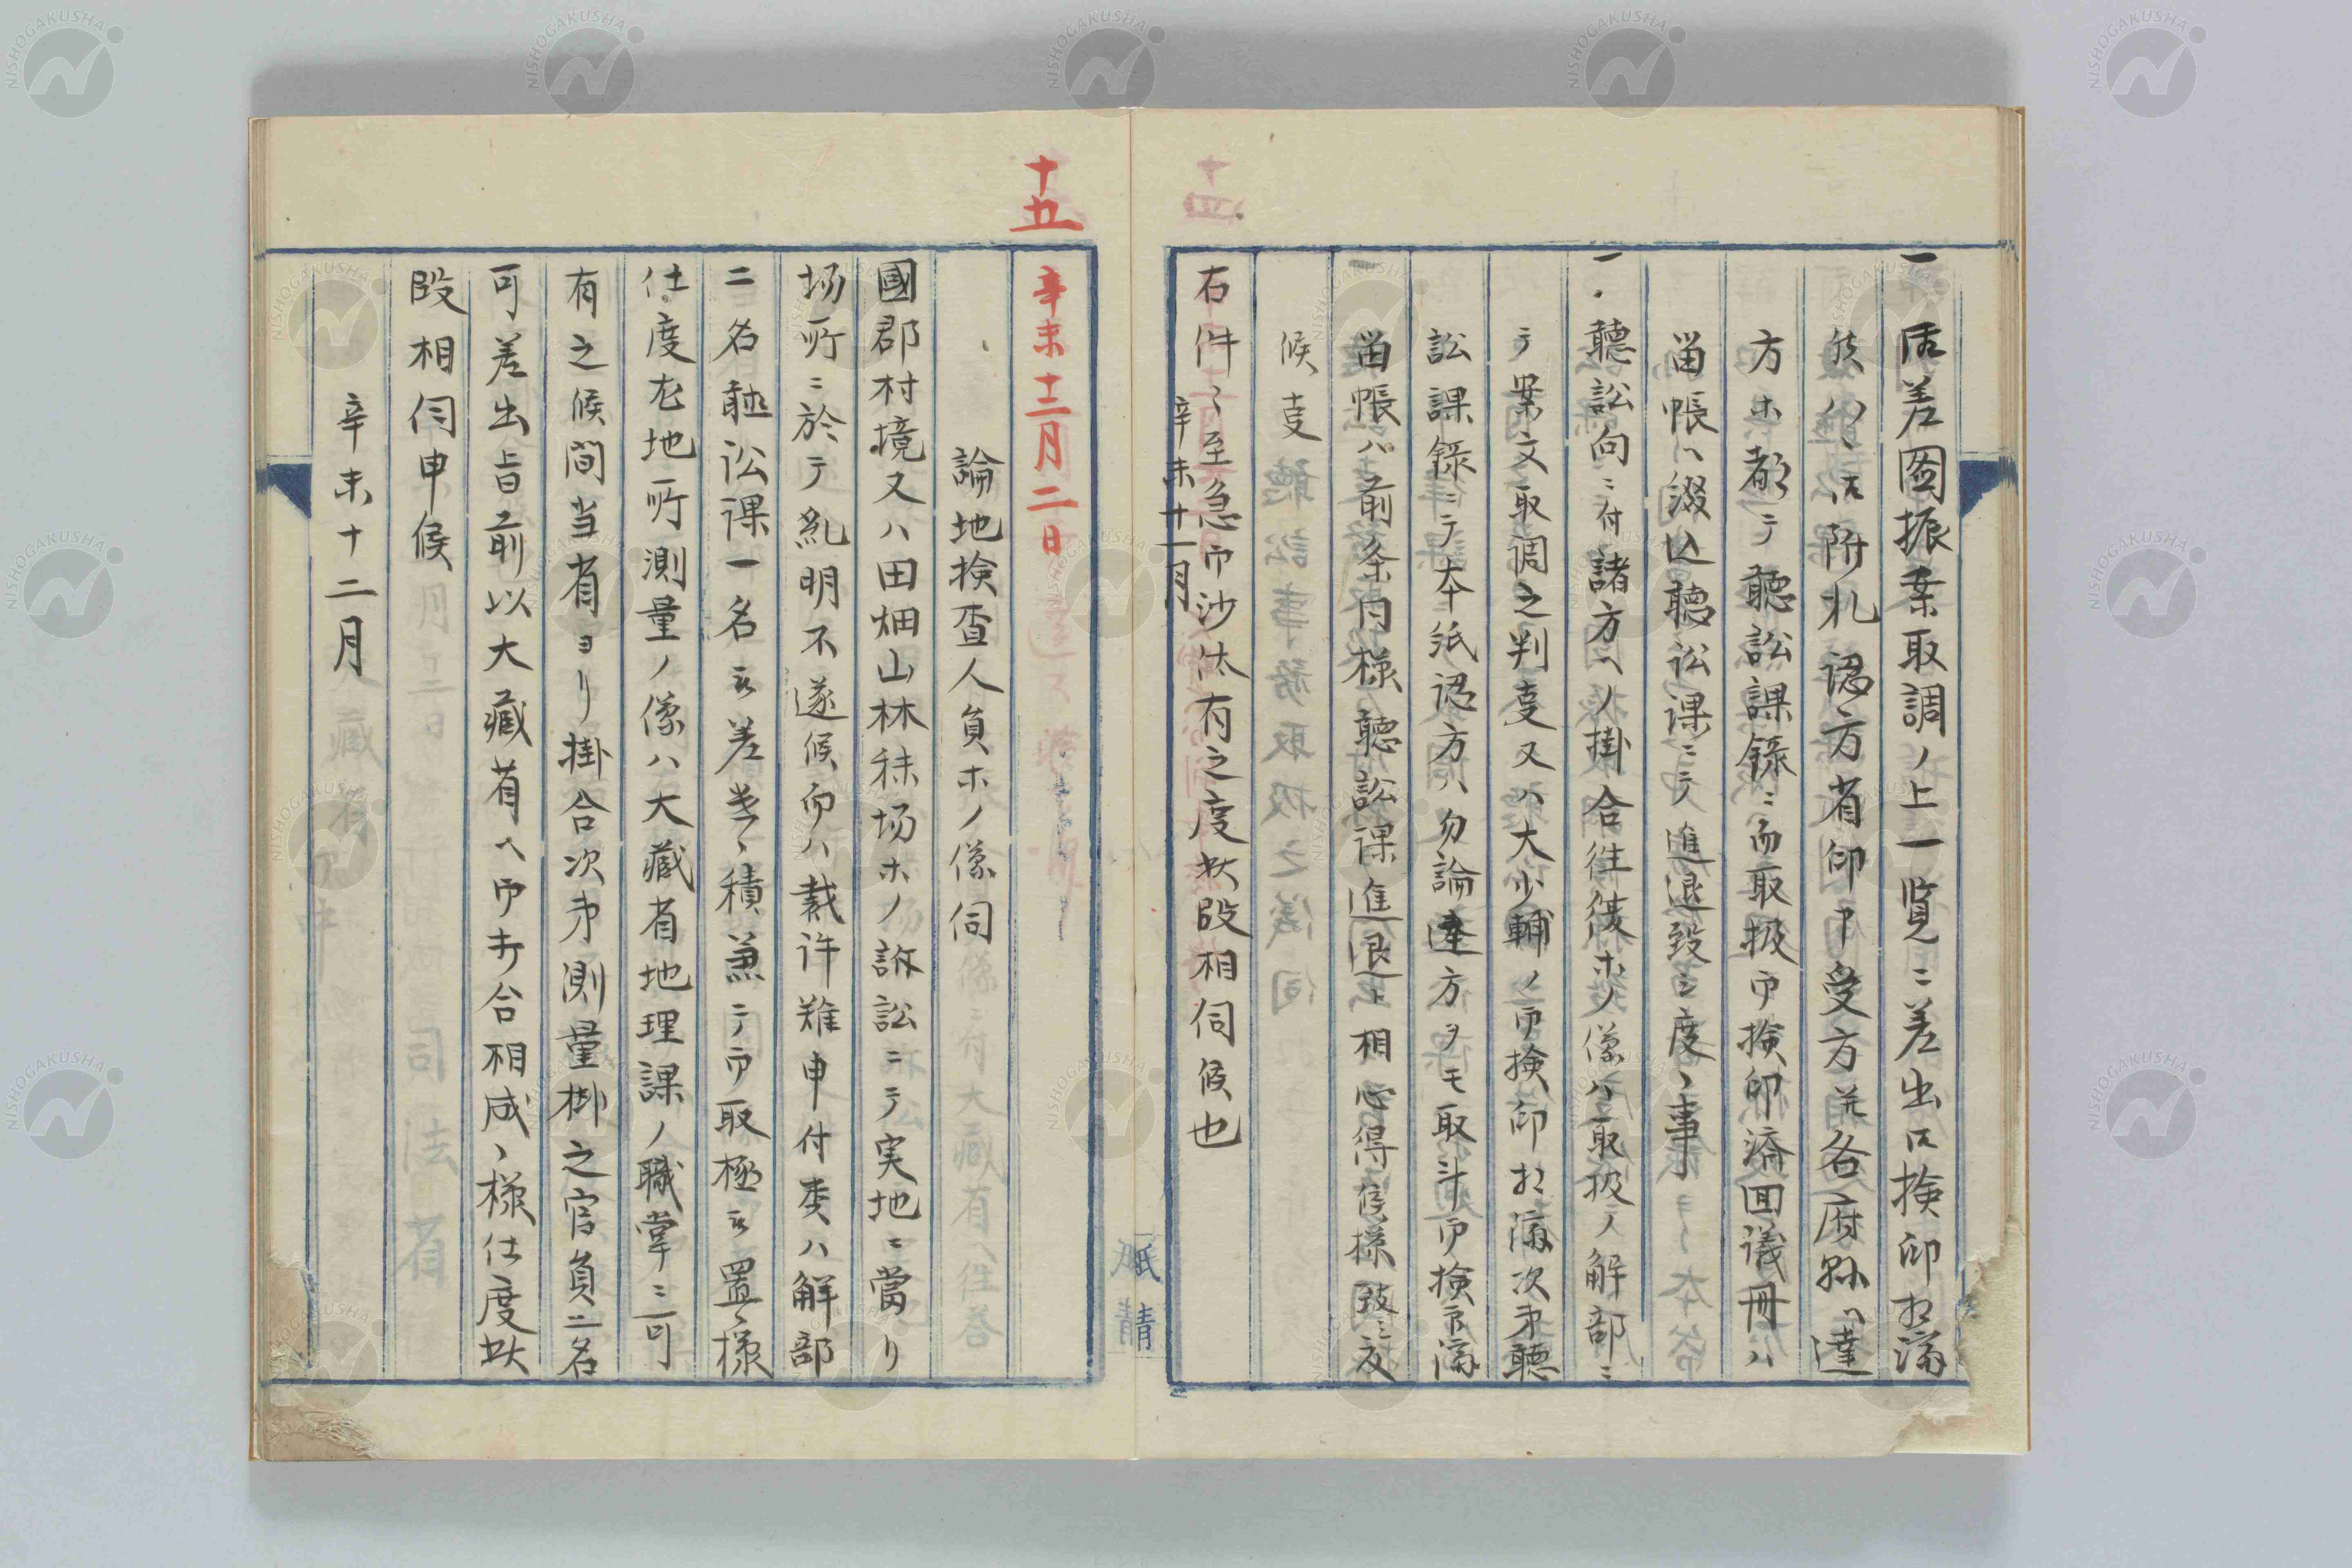 一 法差図振案取調ノ上一覧ニ差出法検印相済
候ハヽ法附札認方省印申受方共各府県ヘ達
方等都テ聴訟課録ニ而取扱御検印済回議冊ハ
留帳ヘ綴込聴訟課ニテ進退致シ度事
一 聴訟向ニ付諸方ヘノ掛合往復等ノ儀ハ取扱ノ解部ニ
テ案文取調之判事又ハ大少輔ノ御検印相済次第聴
訟課録ニテ本紙認方ハ勿論達方ヲモ取計御検印済
留帳ハ前条同様聴訟課進退ト相心得候様致シ度
候事
右件々至急御沙汰有之度此段相伺候也
辛未十一月
紙請
十五
辛未十二月二日
論地検査人員等ノ儀伺
國郡村境又ハ田畑山林秣场等ノ訴訟ニテ実地ニ當リ
场所ニ於テ糺明不遂候而ハ裁許難申付类ハ解部
二名聴訟課一名被差遣積兼テ御取極被置候様
仕度尤地所測量ノ儀ハ大藏省地理課ノ職掌ニ可
有之候間当省ヨリ掛合次第測量掛之官員二名
可差出旨前以大藏省ヘ御打合相成候様仕度此
段相伺申候
辛未十二月